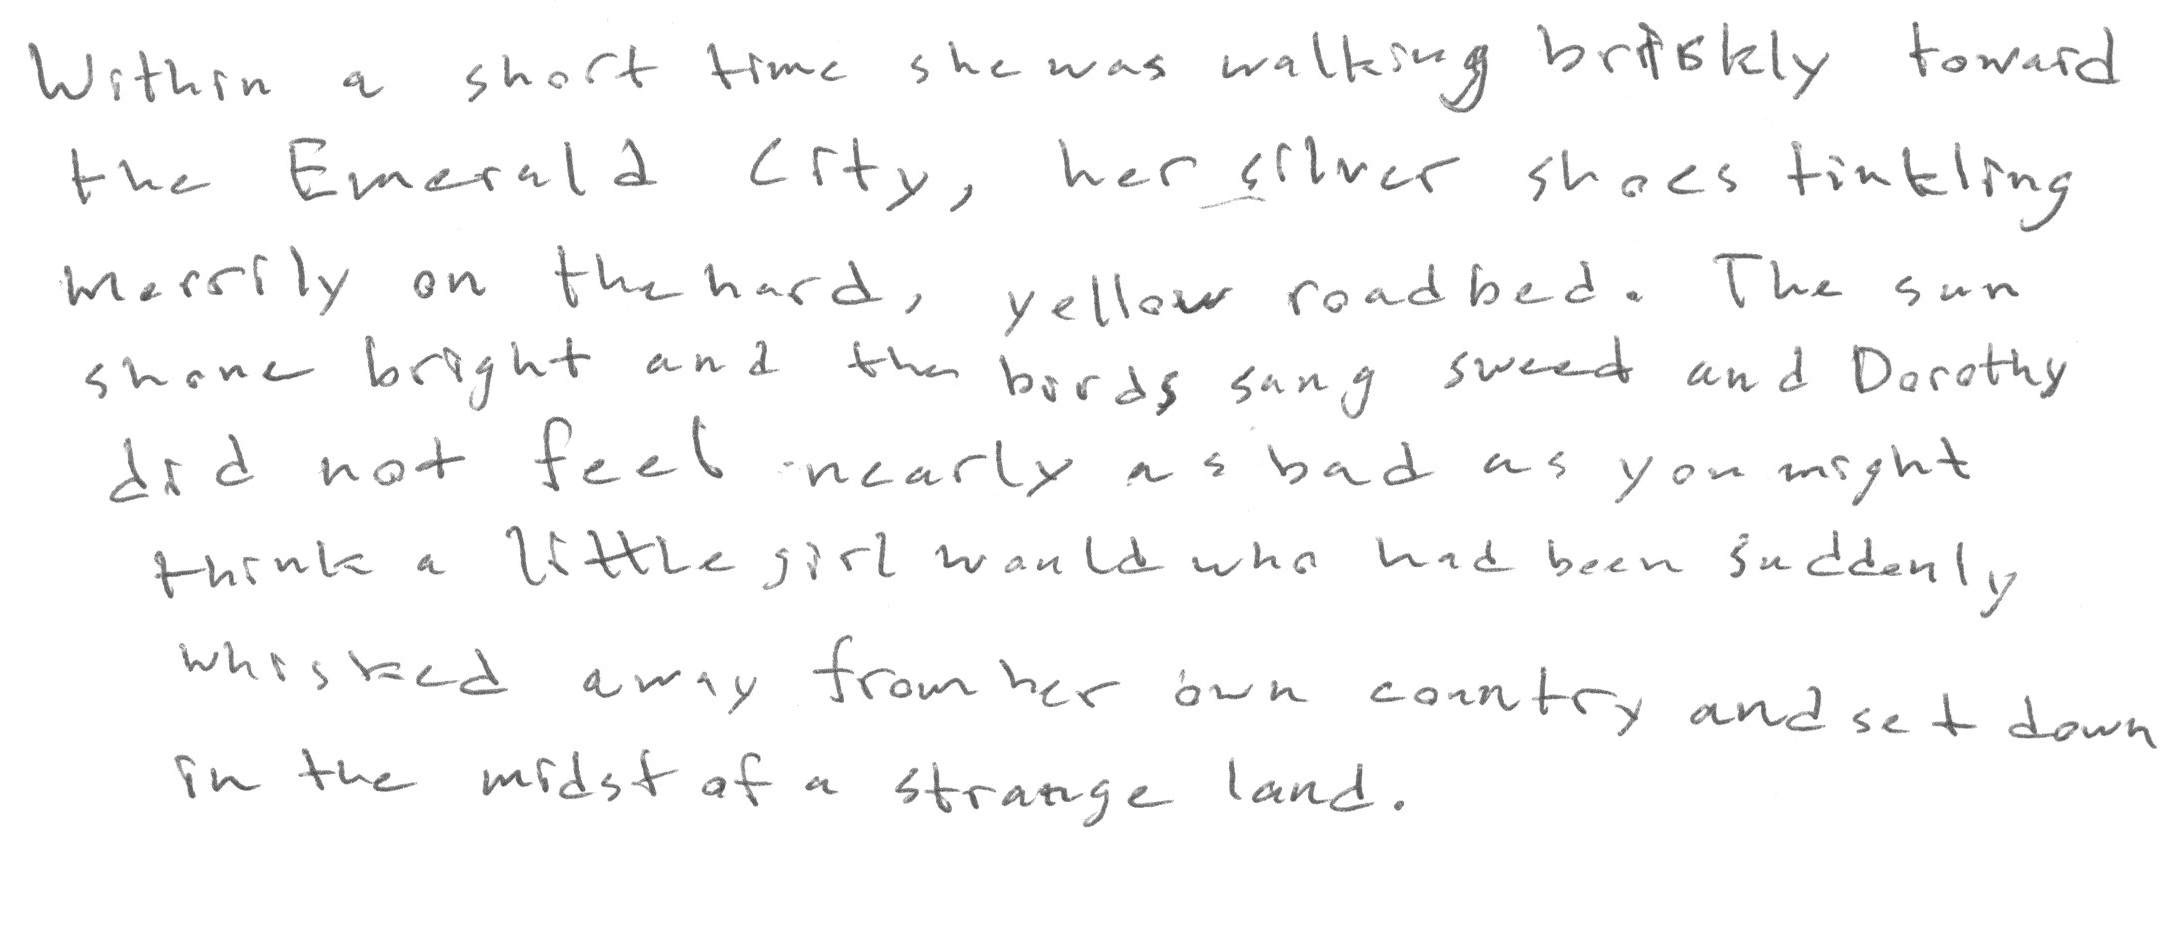 Within a short time she was walking briskly toward
the Emerald City, her silver shoes tinkling
merrily on the hard, yellow roadbed. The sun
shone bright and the birds sang sweed and Dorothy
did not feel nearly as bad as you might
think a little girl would who had been suddenly
whisked away from her own country and set down
in the midst of a strange land.